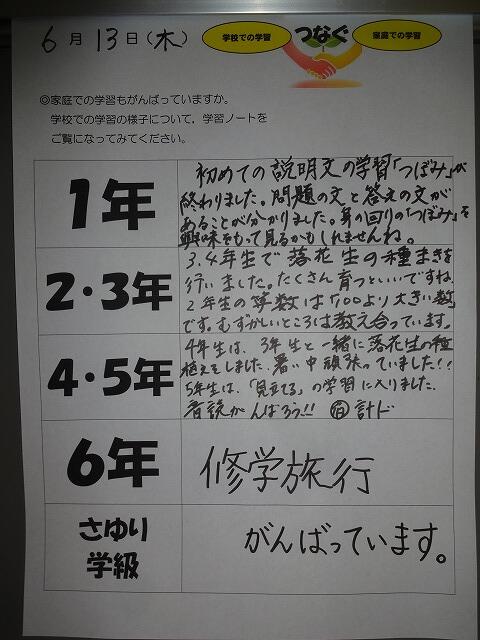 6月13日(木)
学校での学習
つなぐ
家庭での学習
◎家庭での学習もがんばっていますか。
学校での学習の様子について，学習ノートを
ご覧になってみてください。
1年
初めての説明文の学習「つぼみ」が
終わりました。問題の文と答えの文が
あることが分かりました。身の回りの「つぼみ」を
興味をもって見るかもしれませんね。
2・3年
3.4年生で落花生の種まきを
行いました。たくさん育つといいですね
2年生の算数は「100より大きい数」
です。むずかしいところは教え合っています。
4・5年
4年生は、3年生と一緒に落花生の種
植えをしました。暑い中頑張っていました!!
5年生は、「見立てる」の学習に入りました。
音読がんばろう!! 計ド
6年
修学旅行
さゆり
学級
がんばっています。